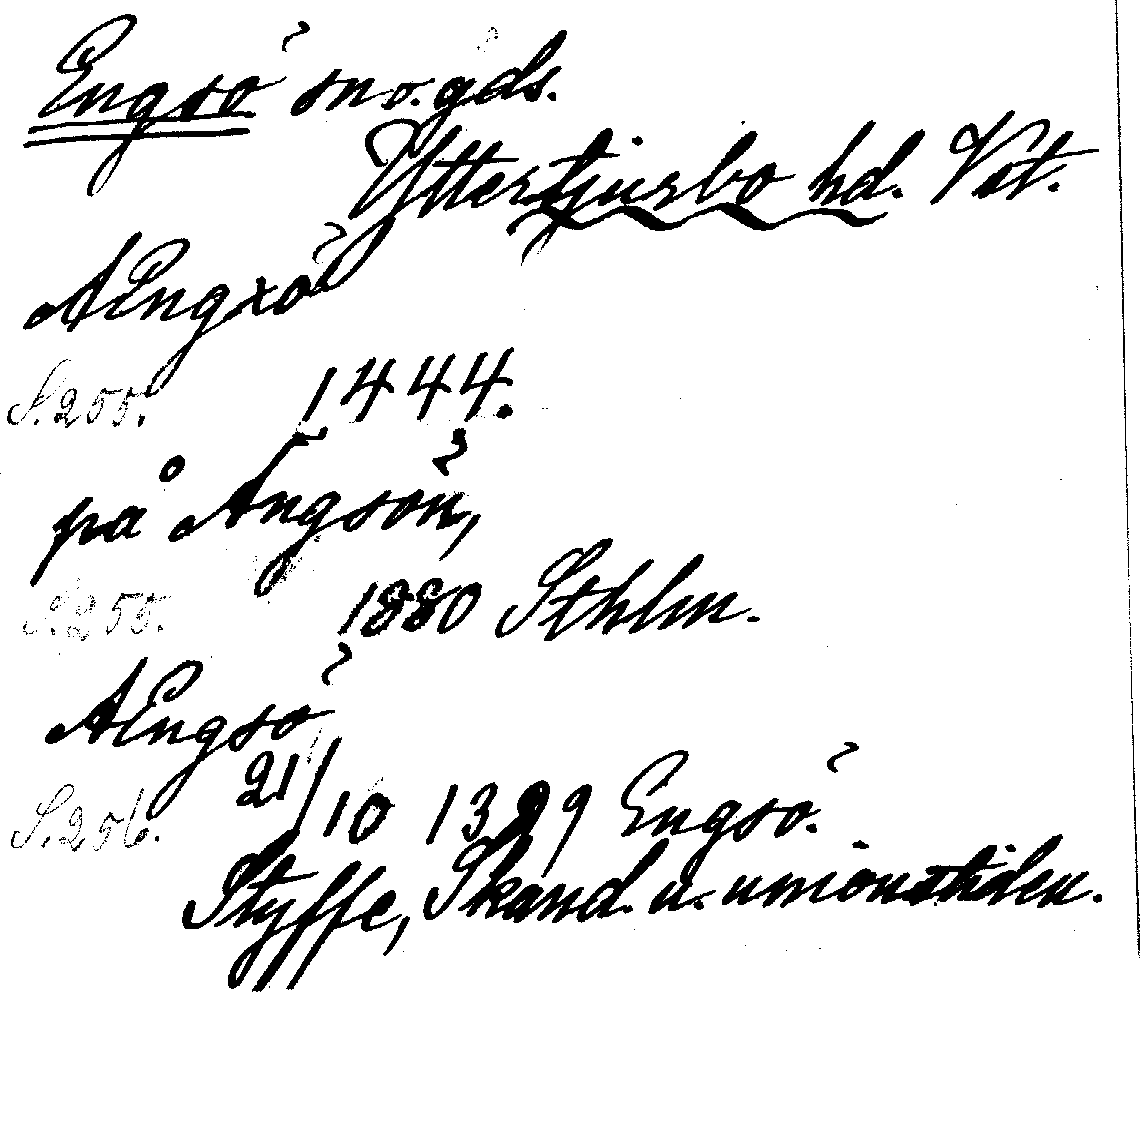 Engsö sn o. gds.
Yttertjurbo hd. Vst.
AEngxö
S. 255. 1444.
på Ängsön,
S. 255. 1880 Sthlm.
AEngsö
S. 256. 21/10 1399 Engsö.
Styffe, Skand. u. unionstiden.